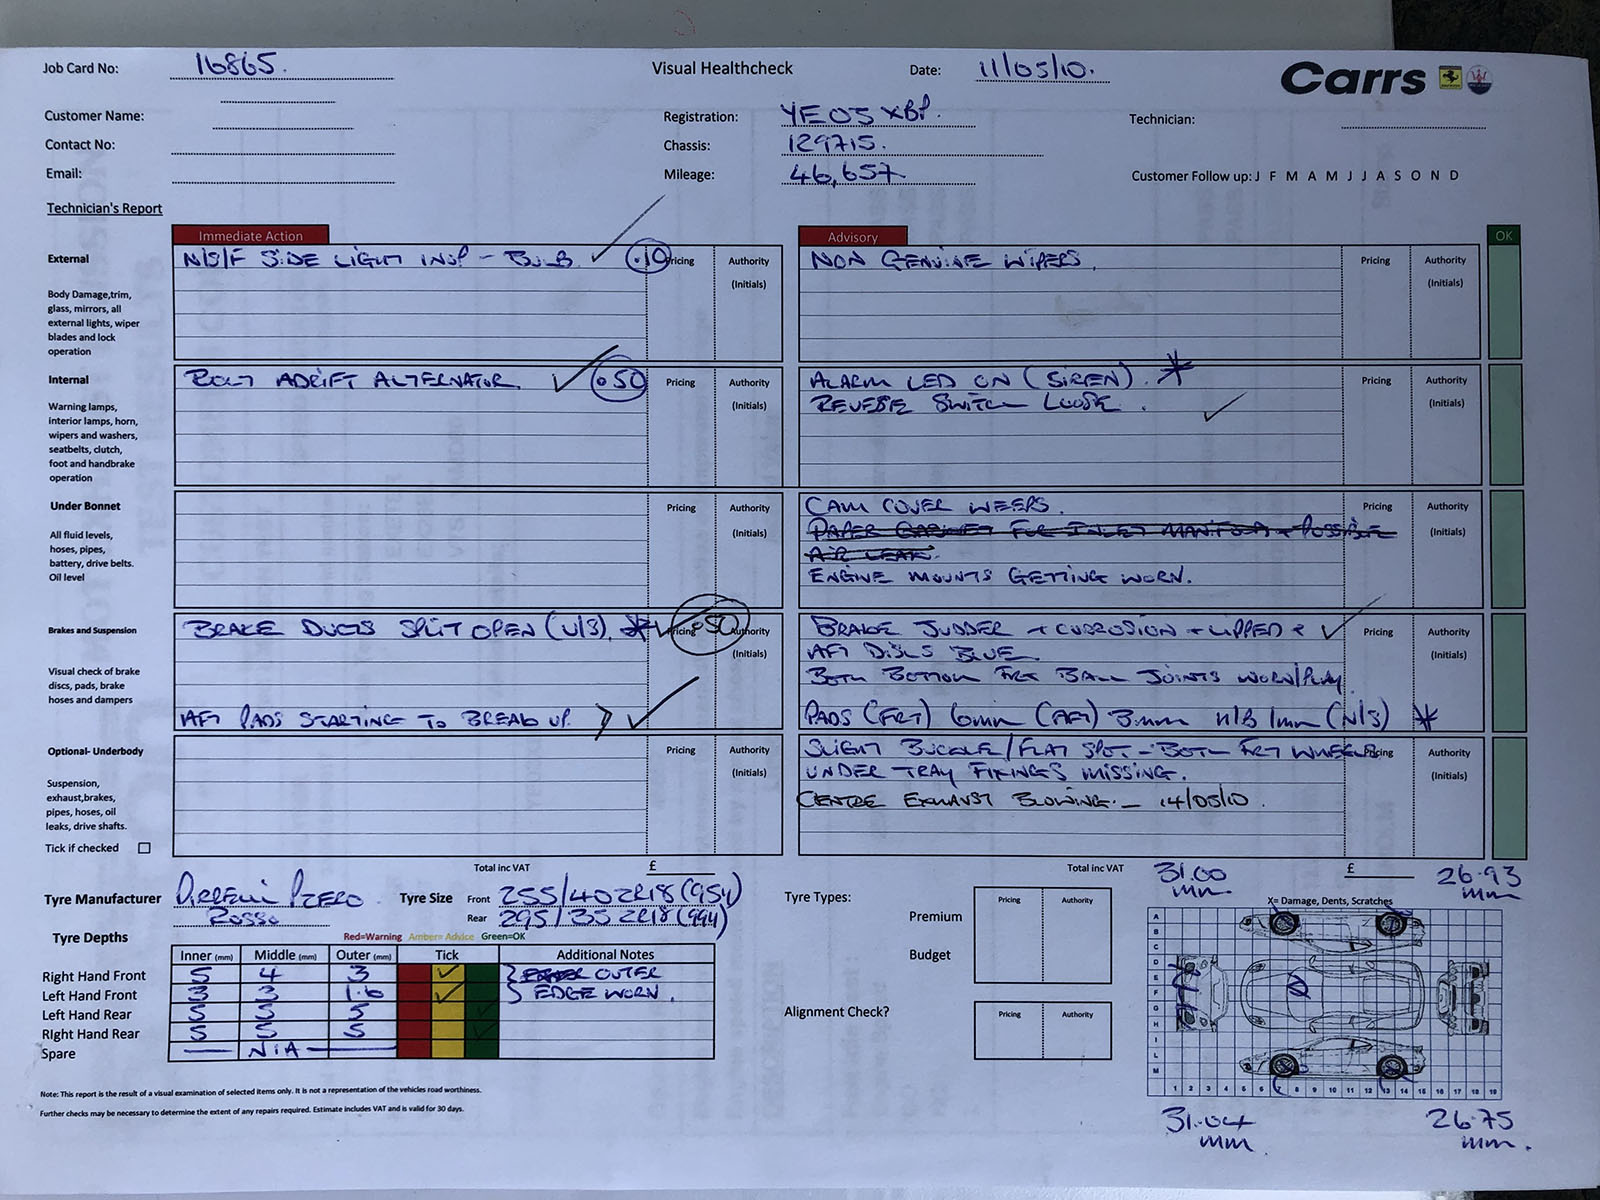 Job Card No: 16865. Visual Healthcheck Date: 11/05/10. Carrs
Customer Name: Registration: YE05 XBP. Technician:
Contact No: Chassis: 129715.
Email: Mileage: 46,657 Customer Follow up: J F M A M J J A S O N D
Technician's Report
Immediate Action Advisory OK
External N/S/F SIDE LIGHT INOP - BULB .10 Pricing Authority (Initials) NON GENUINE WIPERS. Pricing Authority (Initials)
Body Damage,trim,
glass, mirrors, all
external lights, wiper
blades and lock
operation
Internal BOLT ADRIFT ALTERNATOR .50 Pricing Authority (Initials) ALARM LED ON (SIREN). * Pricing Authority (Initials)
REVERSE SWITCH LOOSE.
Warning lamps,
interior lamps, horn,
wipers and washers,
seatbelts, clutch,
foot and handbrake
operation
Under Bonnet Pricing Authority (Initials) CAM COVER WEEPS. Authority (Initials)
PAPER GASKET FOR INLET MANIFOLD - POSSIBLE
AIR LEAK.
ENGINE MOUNTS GETTING WORN.
All fluid levels,
hoses, pipes,
battery, drive belts.
Oil level
Brakes and Suspension BRAKE DUCTS SPLIT OPEN (U/S). * Pricing .50 Authority (Initials) BRAKE JUDDER + CORROSION + LIPPED + Pricing Authority (Initials)
AFT DISCS BLUE.
BOTH BOTTOM FRT BALL JOINTS WORN/PLAY
AFT PADS STARTING TO BREAK UP. PADS (FRT) 6mm (AFT) 3mm H/B 1mm (N/S) *
Visual check of brake
discs, pads, brake
hoses and dampers
Optional- Underbody Pricing Authority (Initials) SLIGHT BUCKLE/FLAT SPOT - BOTH FRT WHEELS Pricing Authority (Initials)
UNDER TRAY FIXINGS MISSING.
CENTRE EXHAUST BLOWING. - 14/05/10.
Suspension,
exhaust,brakes,
pipes, hoses, oil
leaks, drive shafts.
Tick if checked
Total inc VAT £ Total inc VAT £
31.00 mm 26.93 mm
Tyre Manufacturer PIRELLI PZERO Rosso Tyre Size Front 255/40ZR18(95Y)
Rear 295/35ZR18(99Y)
Tyre Types: Pricing Authority
Premium
Budget
X= Damage, Dents, Scratches
Tyre Depths Red=Warning Amber= Advice Green=OK
Inner (mm) Middle (mm) Outer (mm) Tick Additional Notes
Right Hand Front 5 4 3 OUTER
Left Hand Front 3 3 1.6 EDGE WORN.
Left Hand Rear 5 5 5
Right Hand Rear 5 5 5
Spare N/A
Alignment Check? Pricing Authority
A
B
C
D
E
F
G
H
I
L
M
1 2 3 4 5 6 7 8 9 10 11 12 13 14 15 16 17 18 19
Note: This report is the result of a visual examination of selected items only. It is not a representation of the vehicles road worthiness.
Further checks may be necessary to determine the extent of any repairs required. Estimate includes VAT and is valid for 30 days.
31.04 mm 26.75 mm.